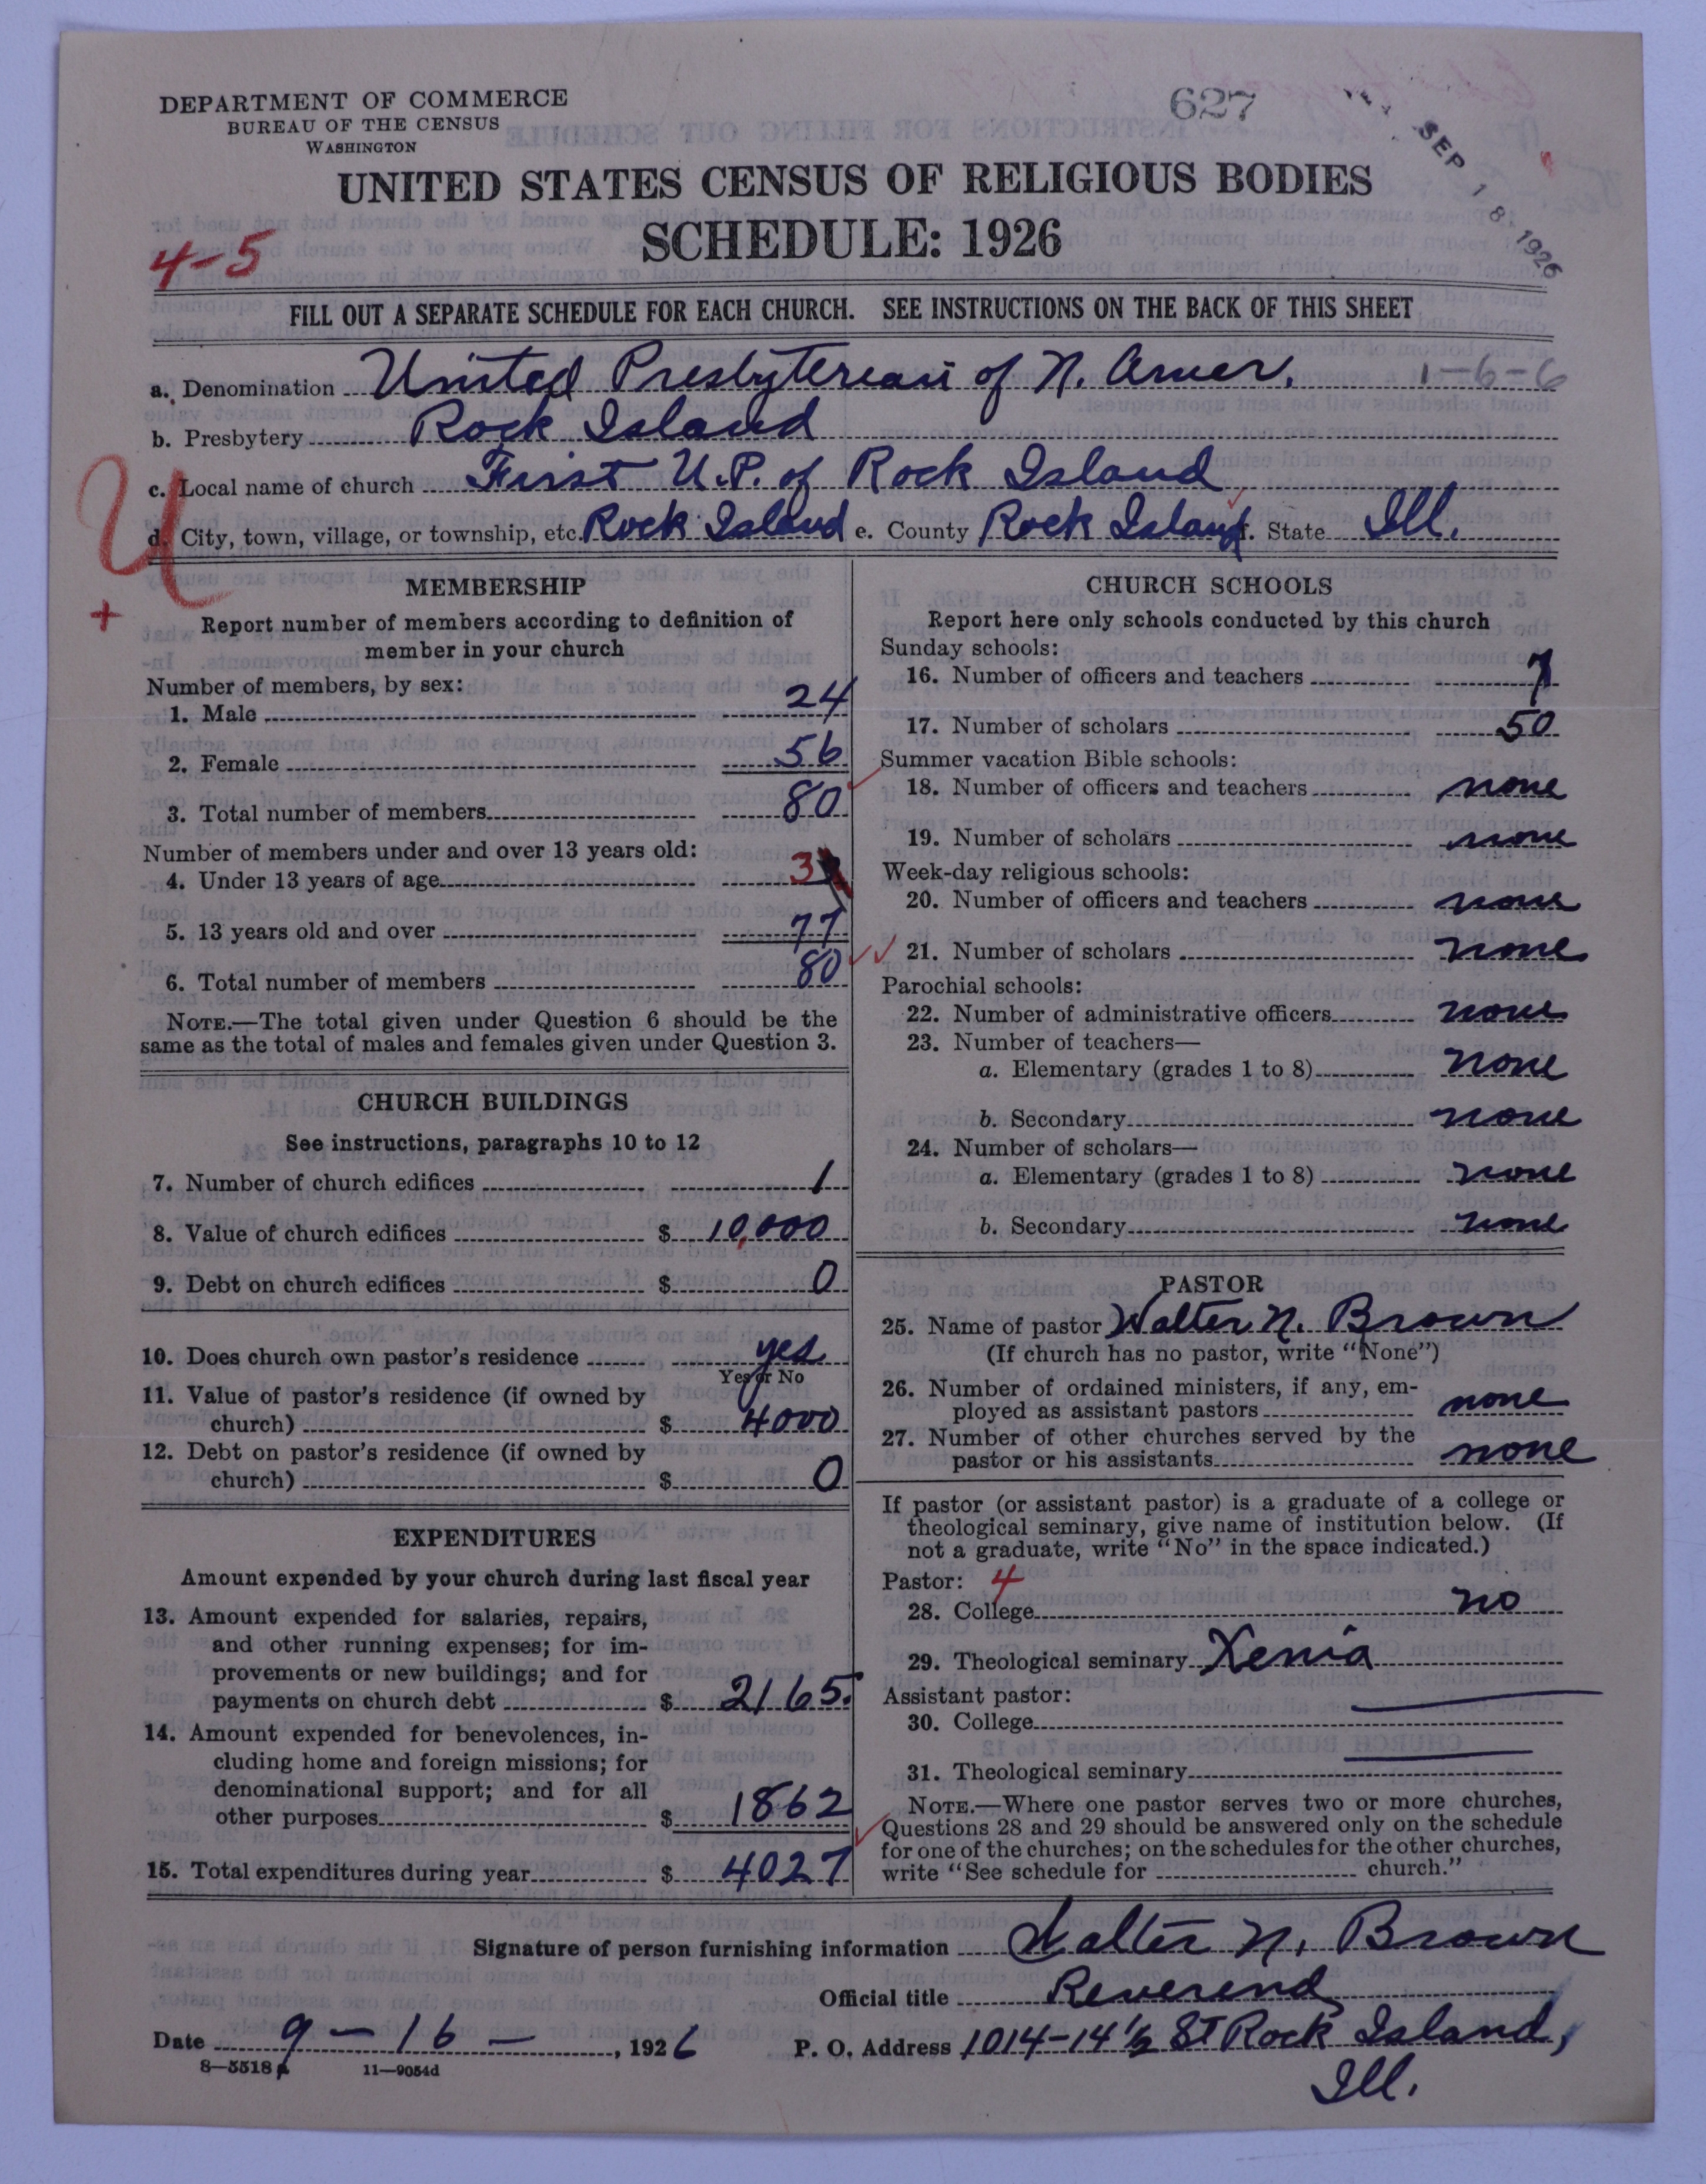 DEPARTMENT OF COMMERCE
BUREAU OF THE CENSUS
WASHINGTON
627
SEP 18 1926
UNITED STATES CENSUS OF RELIGIOUS BODIES
SCHEDULE: 1926
4-5
FILL OUT A SEPARATE SCHEDULE FOR EACH CHURCH. SEE INSTRUCTIONS ON THE BACK OF THIS SHEET
a. Denomination United Presbyterean of N. Amer. 1-6-6
b. Presbytery Rock Island
c. Local name of church First U.P. of Rock Island
d. City, town, village, or township, etc. Rock Island e. County Rock Island f. State Ill.
U
+
MEMBERSHIP
Report number of members according to definition of
member in your church
Number of members, by sex:
1. Male 24
2. Female 56
3. Total number of members 80
Number of members under and over 13 years old:
4. Under 13 years of age 3
5. 13 years old and over 77
6. Total number of members 80
NOTE.—The total given under Question 6 should be the
same as the total of males and females given under Question 3.
CHURCH BUILDINGS
See instructions, paragraphs 10 to 12
7. Number of church edifices 1
8. Value of church edifices $ 10,000
9. Debt on church edifices $ 0
10. Does church own pastor's residence yes
Yes or No
11. Value of pastor's residence (if owned by
church) $ 4000
12. Debt on pastor's residence (if owned by
church) $ 0
EXPENDITURES
Amount expended by your church during last fiscal year
13. Amount expended for salaries, repairs,
and other running expenses; for im-
provements or new buildings; and for
payments on church debt $ 2165.
14. Amount expended for benevolences, in-
cluding home and foreign missions; for
denominational support; and for all
other purposes $ 1862
15. Total expenditures during year $ 4027
CHURCH SCHOOLS
Report here only schools conducted by this church
Sunday schools:
16. Number of officers and teachers 7
17. Number of scholars 50
Summer vacation Bible schools:
18. Number of officers and teachers none
19. Number of scholars none
Week-day religious schools:
20. Number of officers and teachers none
21. Number of scholars none
Parochial schools:
22. Number of administrative officers none
23. Number of teachers—
a. Elementary (grades 1 to 8) none
b. Secondary none
24. Number of scholars—
a. Elementary (grades 1 to 8) none
b. Secondary none
PASTOR
25. Name of pastor Walter N. Brown
(If church has no pastor, write "None")
26. Number of ordained ministers, if any, em-
ployed as assistant pastors none
27. Number of other churches served by the
pastor or his assistants none
If pastor (or assistant pastor) is a graduate of a college or
theological seminary, give name of institution below. (If
not a graduate, write "No" in the space indicated.)
Pastor: 4
28. College no
29. Theological seminary Xenia
Assistant pastor:
30. College
31. Theological seminary
NOTE.—Where one pastor serves two or more churches,
Questions 28 and 29 should be answered only on the schedule
for one of the churches; on the schedules for the other churches,
write "See schedule for church."
Signature of person furnishing information Walter N. Brown
Official title Reverend
Date 9-16-, 1926 P. O. Address 1014-14½ St Rock Island,
Ill.
8-5518 11-9054d